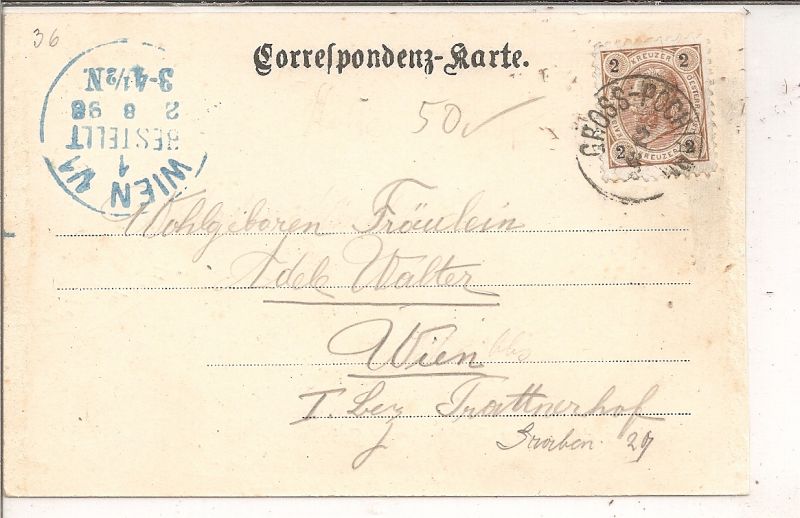 36
Correspondenz-Karte.
WIEN 1/1
1
BESTELLT
2 8 98
3-4½N.
50
2 KREUZER 2
2 KREUZER 2
GROSS-PÖCH
Wohlgeboren Fräulein
Adele Walter
Wien
I. Bez Trattnerhof
Graben 29